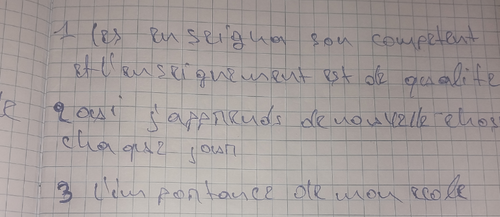 1 les enseigna son competent
et l'enseignement est de qualite
2 oui j'apprends de nouvelle chos
chaque jour
3 L'importance de mon ecole